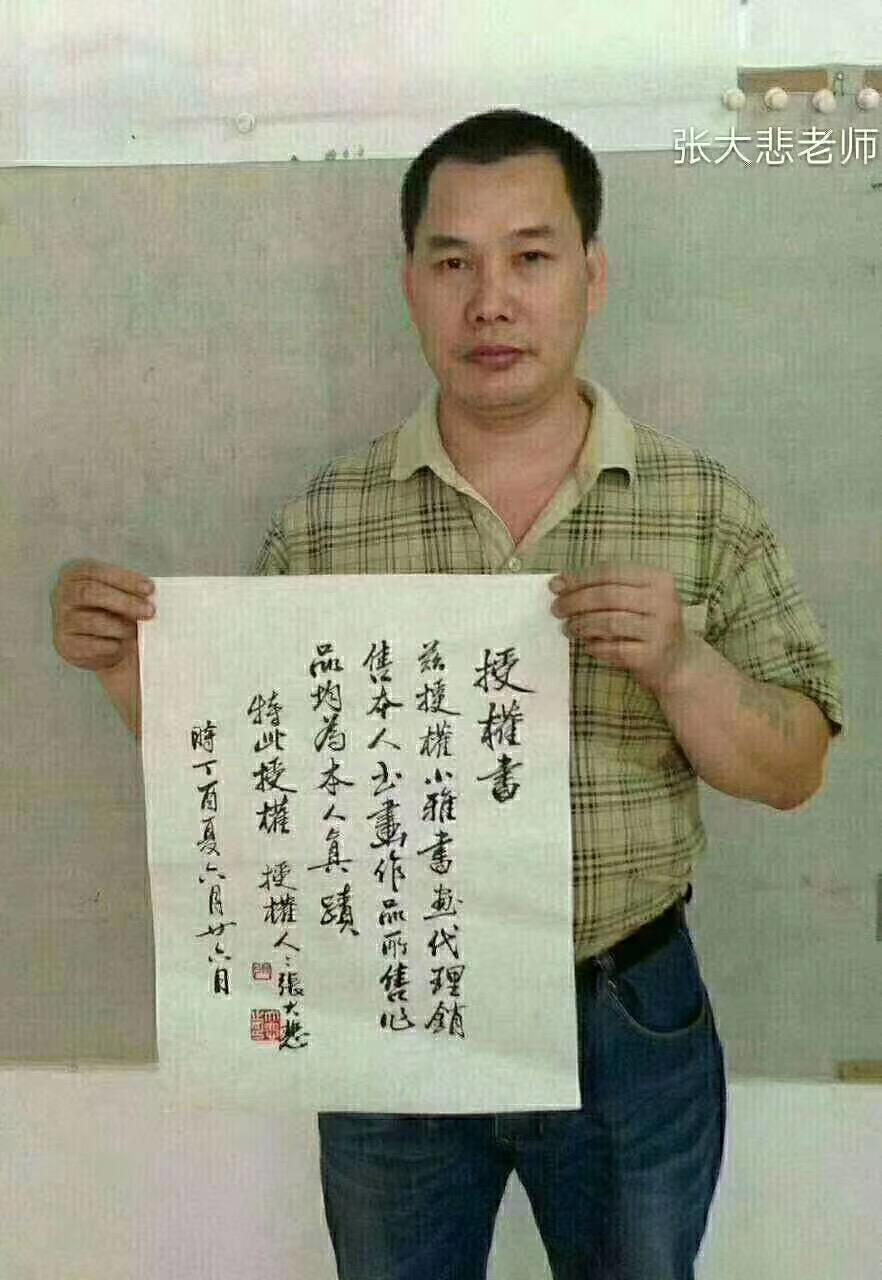 张大悲老师
授權書
茲授權小雅書畫代理銷
售本人书畫作品所售作
品均為本人真蹟
特此授權 授權人:張大悲
時丁酉夏六月廿六日